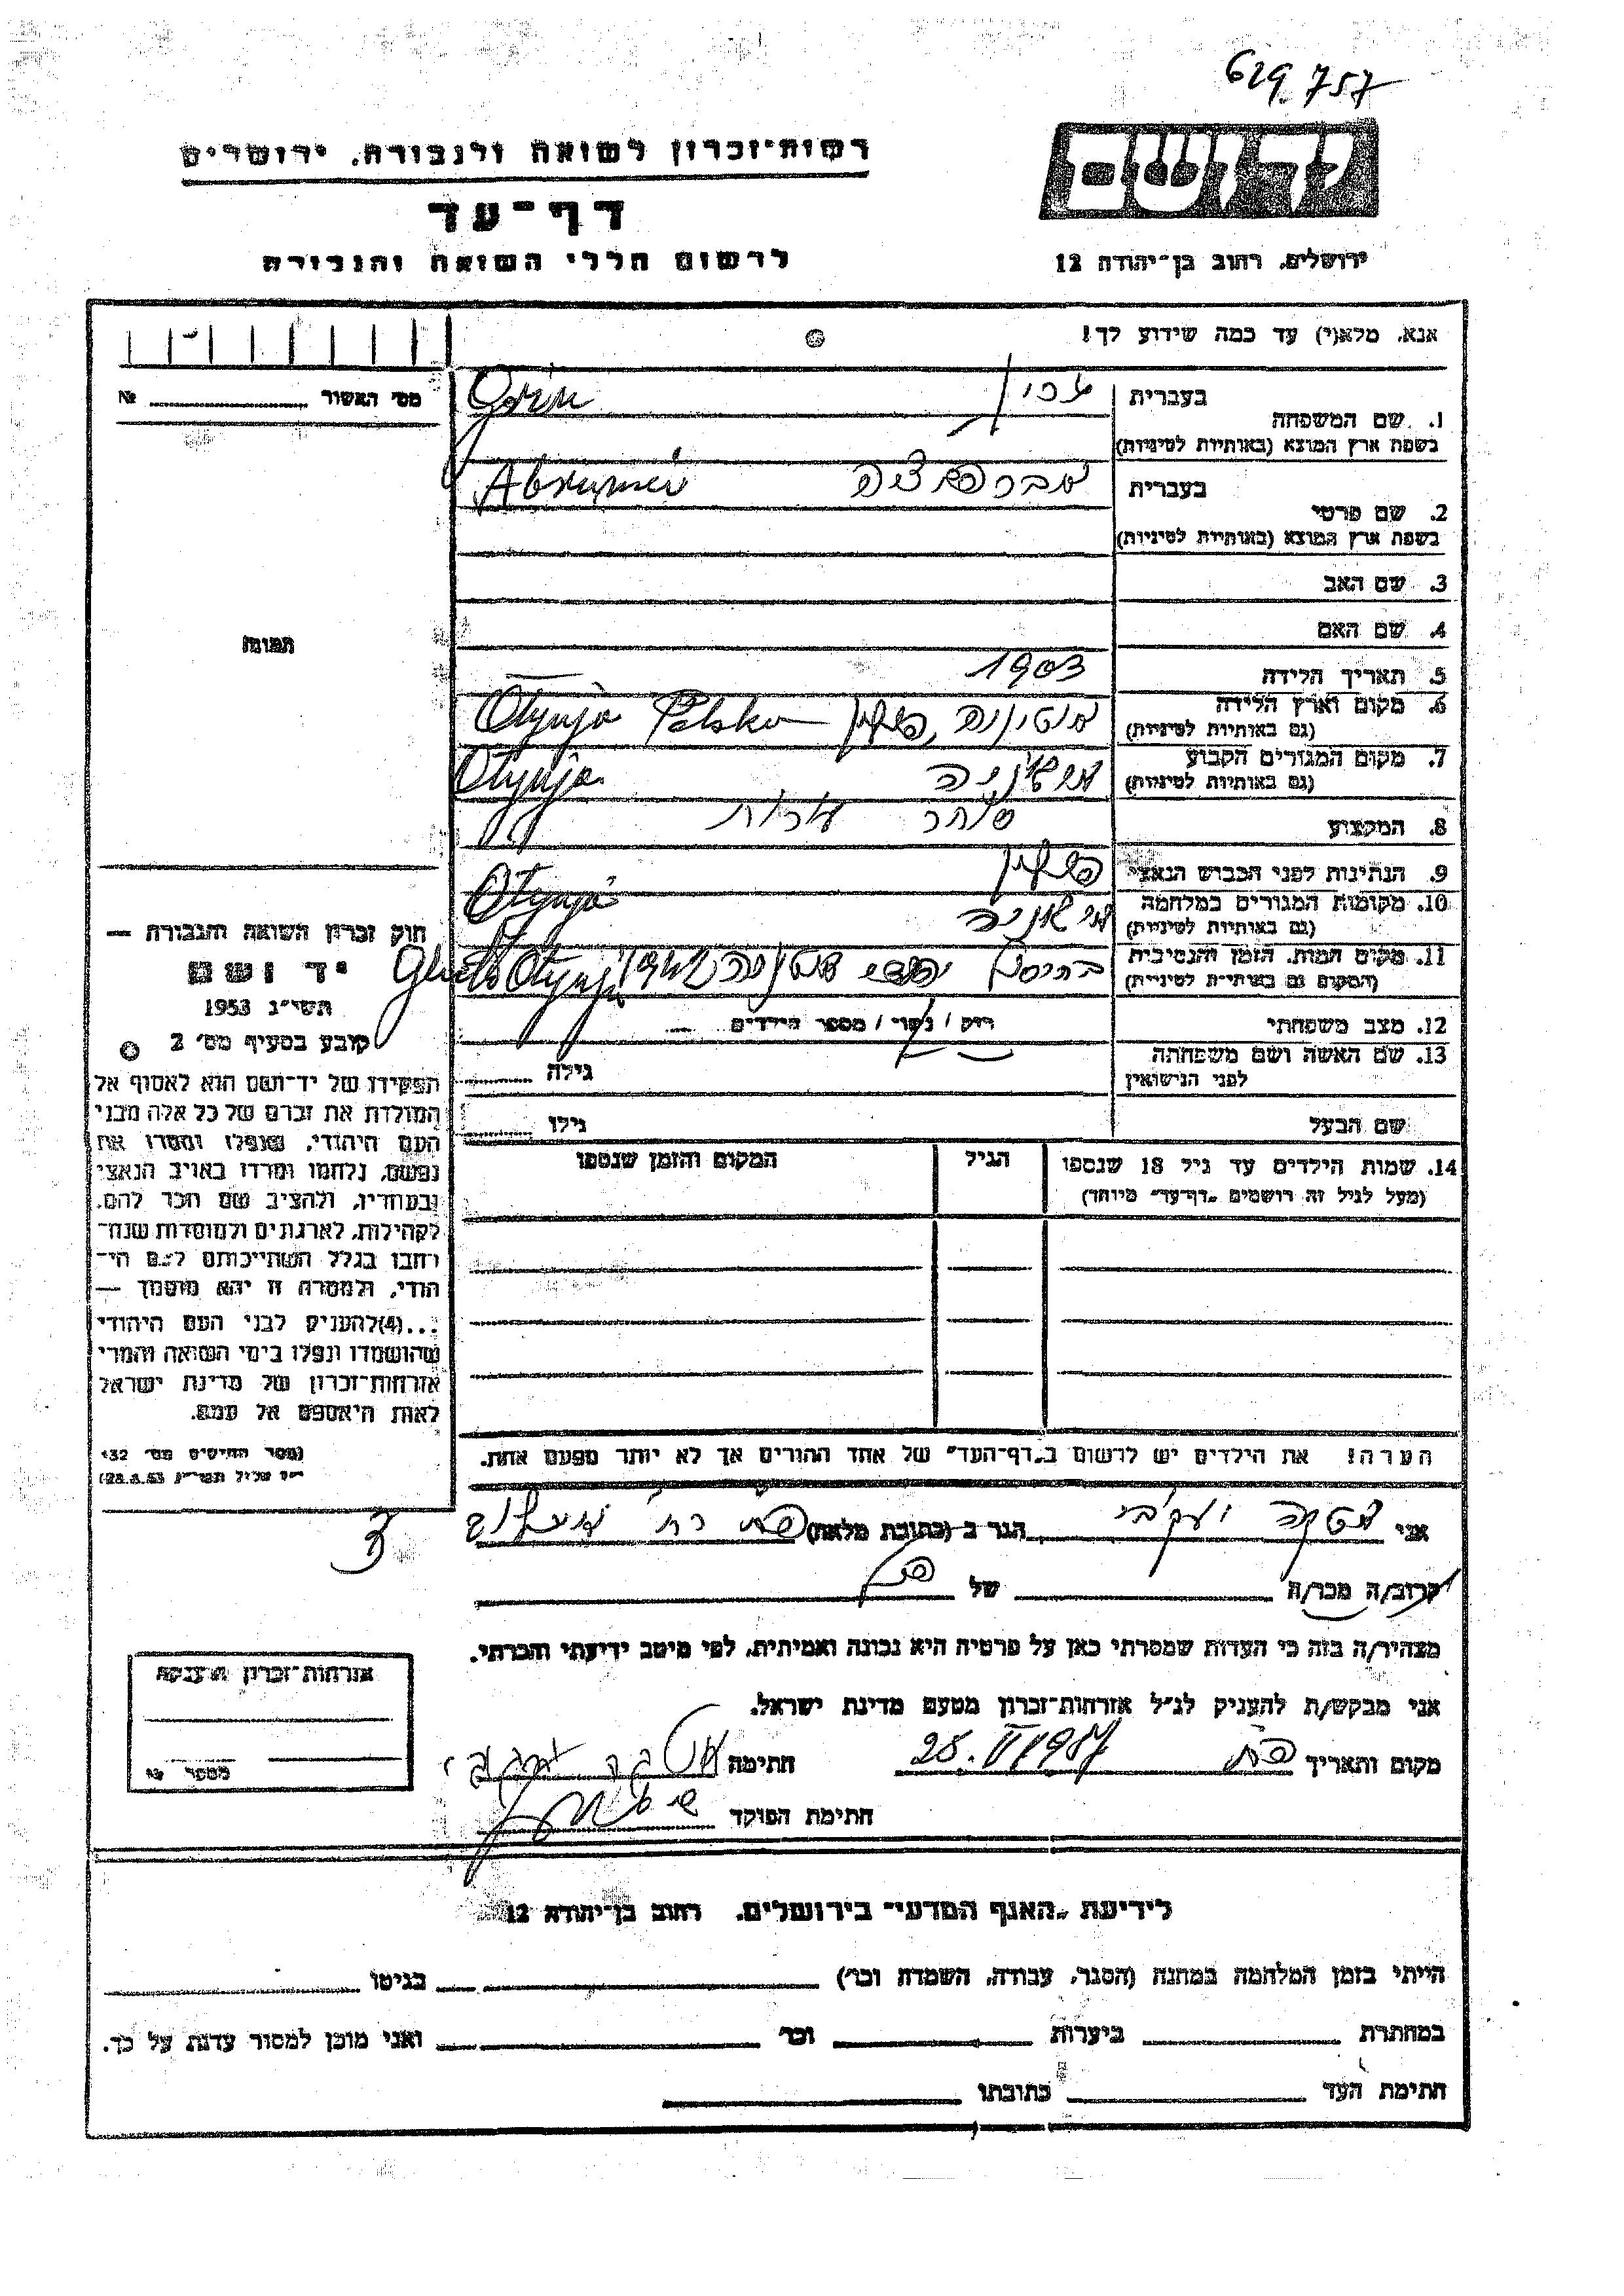 629.757
יד ושם
רשות-זכרון לשואה ולגבורה, ירושלים
דף-עד
לרשום חללי השואה והגבורה
ירושלים, רחוב בן-יהודה 12
אנא, מלא(י) עד כמה שידוע לך!
מס' האשור № 
בעברית
1. שם המשפחה
בשפת ארץ המוצא (באותיות לטיניות)
בעברית
2. שם פרטי
בשפת ארץ המוצא (באותיות לטיניות)
3. שם האב
4. שם האם
5. תאריך הלידה 1903
6. מקום וארץ הלידה
(גם באותיות לטיניות) פולין Otynja Polska
7. מקום המגורים הקבוע
(גם באותיות לטיניות) Otynja
8. המקצוע סוחר
9. הנתינות לפני הכבוש הנאצי פולין
10. מקומות המגורים במלחמה
(גם באותיות לטיניות) Otynja
11. מקום המות, הזמן והנסיבות
(המקום גם באותיות לטיניות) 1942 Ghetto Otynja
12. מצב משפחתי רוק / נשוי / מספר הילדים
13. שם האשה ושם משפחתה
לפני הנישואין גילה
שם הבעל גילו
14. שמות הילדים עד גיל 18 שנספו הגיל המקום והזמן שנספו
(מעל לגיל זה רושמים "דף-עד" מיוחד)
הערה! את הילדים יש לרשום ב"דף-העד" של אחד ההורים אך לא יותר מפעם אחת.
תמונה
חוק זכרון השואה והגבורה —
יד ושם
תשי"ג 1953
קובע בסעיף מס' 2
תפקידו של יד-ושם הוא לאסוף אל
המולדת את זכרם של כל אלה מבני
העם היהודי, שנפלו ומסרו את
נפשם, נלחמו ומרדו באויב הנאצי
ובעוזריו, ולהציב שם וזכר להם,
לקהילות, לארגונים ולמוסדות שנח-
רבו בגלל השתייכותם לעם הי-
הודי, ולמטרה זו יהא מוסמך —
...(4)להעניק לבני העם היהודי
שהושמדו ונפלו בימי השואה והמרי
אזרחות-זכרון של מדינת ישראל
לאות היאספם אל עמם.
(ספר החוקים מס' 132
28.8.53)
אני הגר ב (כתובת מלאה)
קרוב/ה מכר/ה של
מצהיר/ה בזה כי העדות שמסרתי כאן על פרטיה היא נכונה ואמיתית, לפי מיטב ידיעתי והכרתי.
אני מבקש/ת להעניק לנ"ל אזרחות-זכרון מטעם מדינת ישראל.
מקום ותאריך חתימה
חתימת הפוקד
אזרחות-זכרון הוענקה
מספר №
לידיעת "האגף המדעי" בירושלים, רחוב בן-יהודה 12
הייתי בזמן המלחמה במחנה (הסגר, עבודה, השמדה וכו') בגיטו
במחתרת ביערות וכו' ואני מוכן למסור עדות על כך.
חתימת העד כתובתו